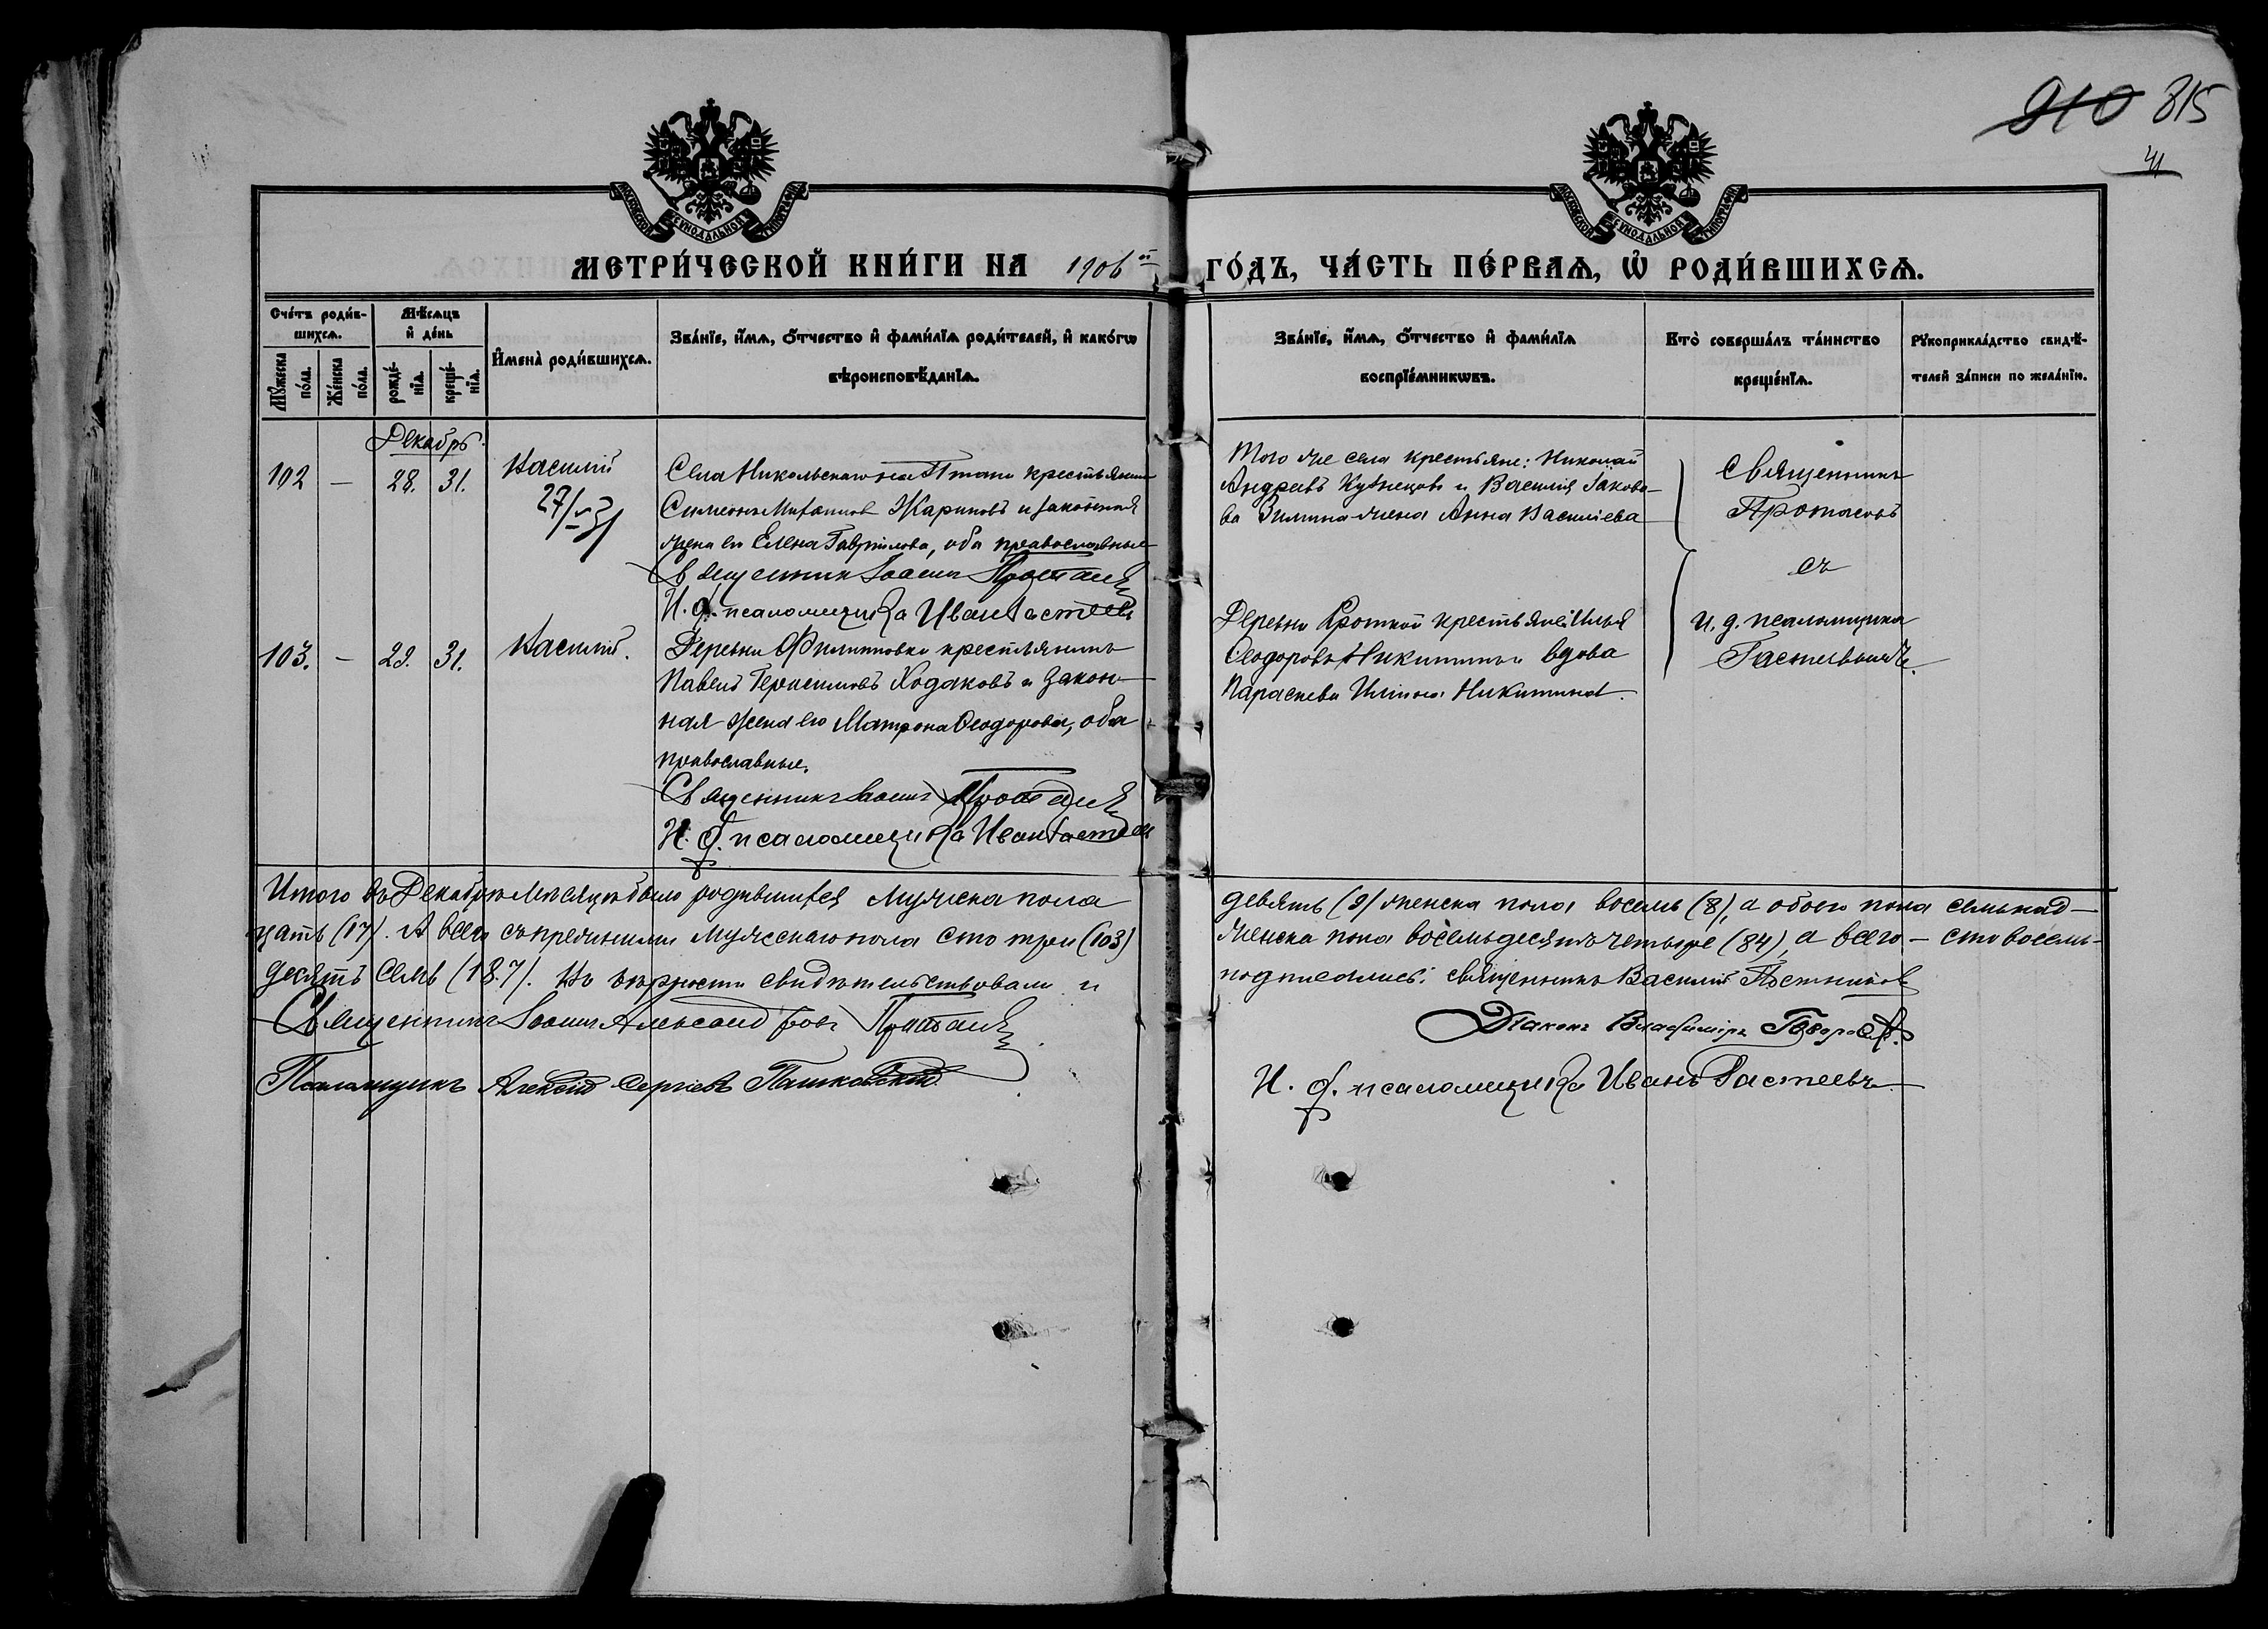 910 815
41
МОСКОВСКОЙ СѴНОДАЛЬНОЙ ТИПОГРАФІИ
МОСКОВСКОЙ СѴНОДАЛЬНОЙ ТИПОГРАФІИ
МЕТРИ́ЧЕСКОЙ КНИ́ГИ НА 1906й ГО́ДЪ, ЧА́СТЬ ПЕ́РВАѦ, Ѽ РОДИ́ВШИХСѦ.
Сче́тъ роди́в-
шихсѧ.
Мꙋ́жеска по́ла.
Же́нска по́ла.
Мѣ́сѧцъ
и҆ де́нь
рожде́-
нїѧ.
креще́-
нїѧ.
И҆мена̀ роди́вшихсѧ.
Зва́нїе, и҆́мѧ, ѻ҆́тчество и҆ фами́лїѧ роди́телей, и҆ како́гѡ
вѣроисповѣ́данїѧ.
Зва́нїе, и҆́мѧ, ѻ҆́тчество и҆ фами́лїѧ
воспрїе́мникѡвъ.
Кто̀ соверша́лъ та́инство
креще́нїѧ.
Рꙋкоприкла́дство свидѣ́-
телей за́писи по жела́нїю.
Декабрь.
102 — 28. 31. Василій
27/5 31
Села Никольскаго на крестьянинъ
Симеонъ Жариковъ и законная
жена его Елена Гавриилова, оба православные
Священникъ Іоаннъ Протасовъ
И. д. псаломщика Иванъ Гастевъ
Того же села крестьяне: Николай
Андреевъ Кузнецовъ и Василія Іакова-
ва Зимина жена Анна Васильева
Священникъ
Протасовъ
съ
и. д. псаломщика
Гастевымъ.
103. — 29. 31. Василій.
Деревни Филипповки крестьянинъ
Павелъ Герасимовъ Ходаковъ и закон-
ная жена его Матрона Ѳеодорова, оба
православные.
Священникъ Іоаннъ Протасовъ
И. д. псаломщика Иванъ Гастевъ
Деревни Кроткой крестьяне: Илья
Ѳеодоровъ Никитинъ и вдова
Параскева Никитина.
Итого въ Декабрѣ мѣсяцѣ было родившихся мужеска пола девять (9) женска пола восемь (8), а обоего пола семьнад-
цать (17). А всего съ прежними мужескаго пола сто три (103) женска пола восемьдесятъ четыре (84), а всего — сто восемь-
десятъ семь (187). Въ вѣрности свидѣтельствовали и подписались: священникъ Василій Постниковъ
Священникъ Іоаннъ Александровъ Протасовъ
Діаконъ Владиміръ
Псаломщикъ Алексій Сергіевъ Пашковскій
И. д. псаломщика Иванъ Гастевъ